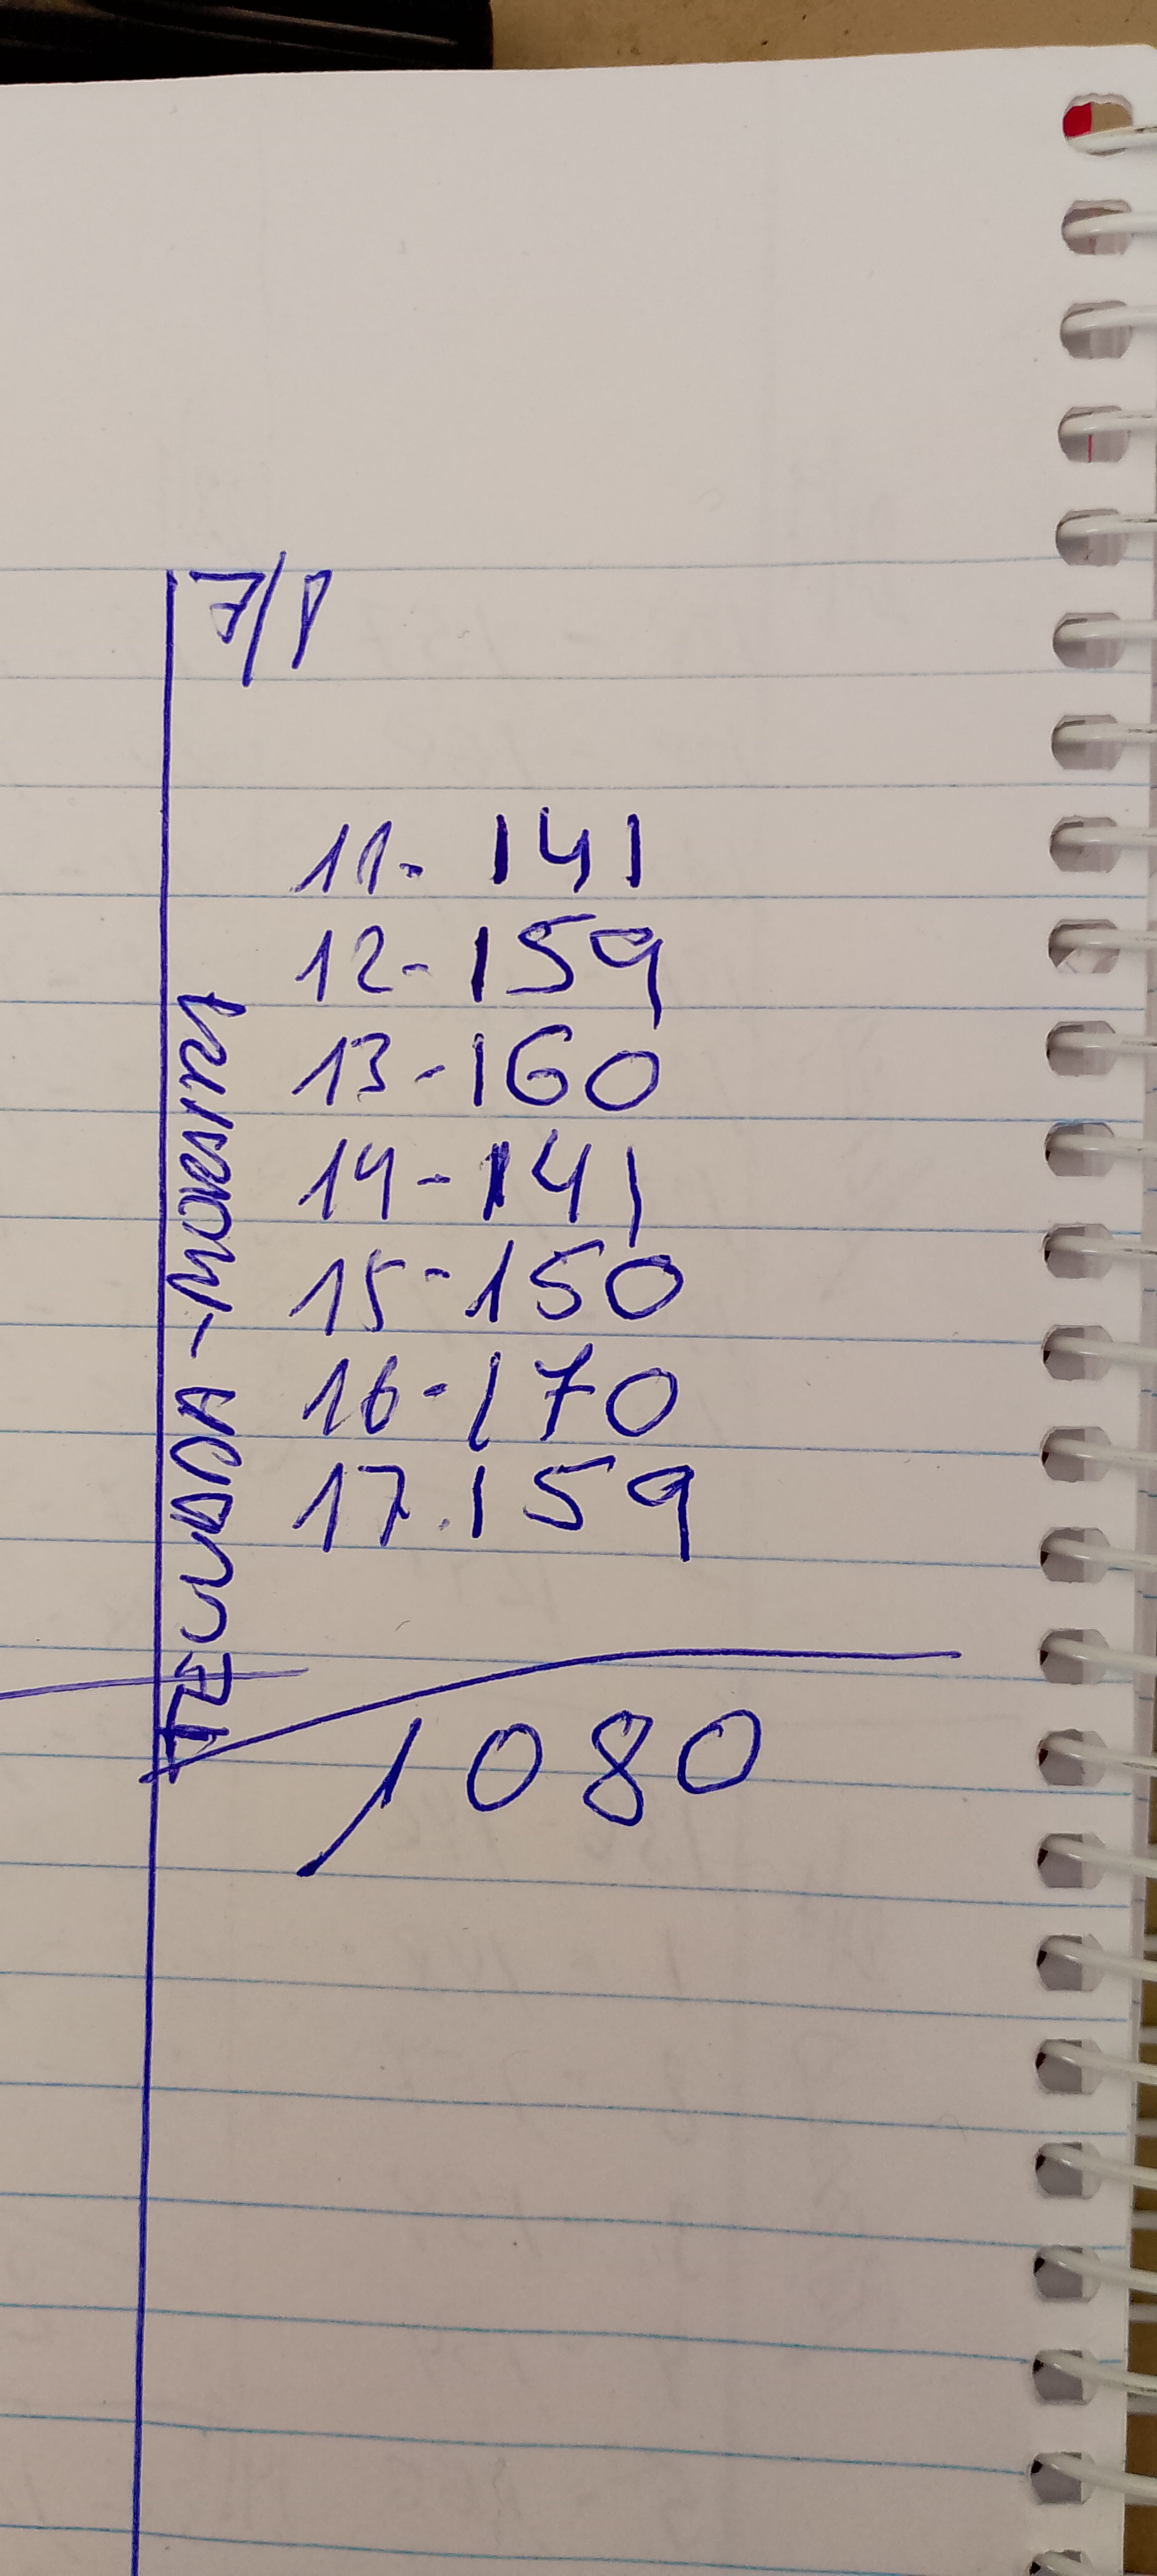 7/P
11- 141
12- 159
13- 160
14- 141
15- 150
16- 170
17. 159
1080